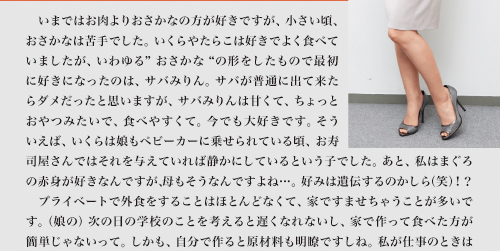 いまではお肉よりおさかなの方が好きですが、小さい頃、
おさかなは苦手でした。いくらやたらこは好きでよく食べて
いましたが、いわゆる” おさかな “の形をしたもので最初
に好きになったのは、サバみりん。サバが普通に出て来た
らダメだったと思いますが、サバみりんは甘くて、ちょっと
おやつみたいで、食べやすくて。今でも大好きです。そう
いえば、いくらは娘もベビーカーに乗せられている頃、お寿
司屋さんではそれを与えていれば静かにしているという子でした。あと、私はまぐろ
の赤身が好きなんですが、母もそうなんですよね…。好みは遺伝するのかしら(笑)！？
プライベートで外食をすることはほとんどなくて、家ですませちゃうことが多いで
す。(娘の) 次の日の学校のことを考えると遅くなれないし、家で作って食べた方が
簡単じゃないって。しかも、自分で作ると原材料も明瞭ですしね。私が仕事のときは